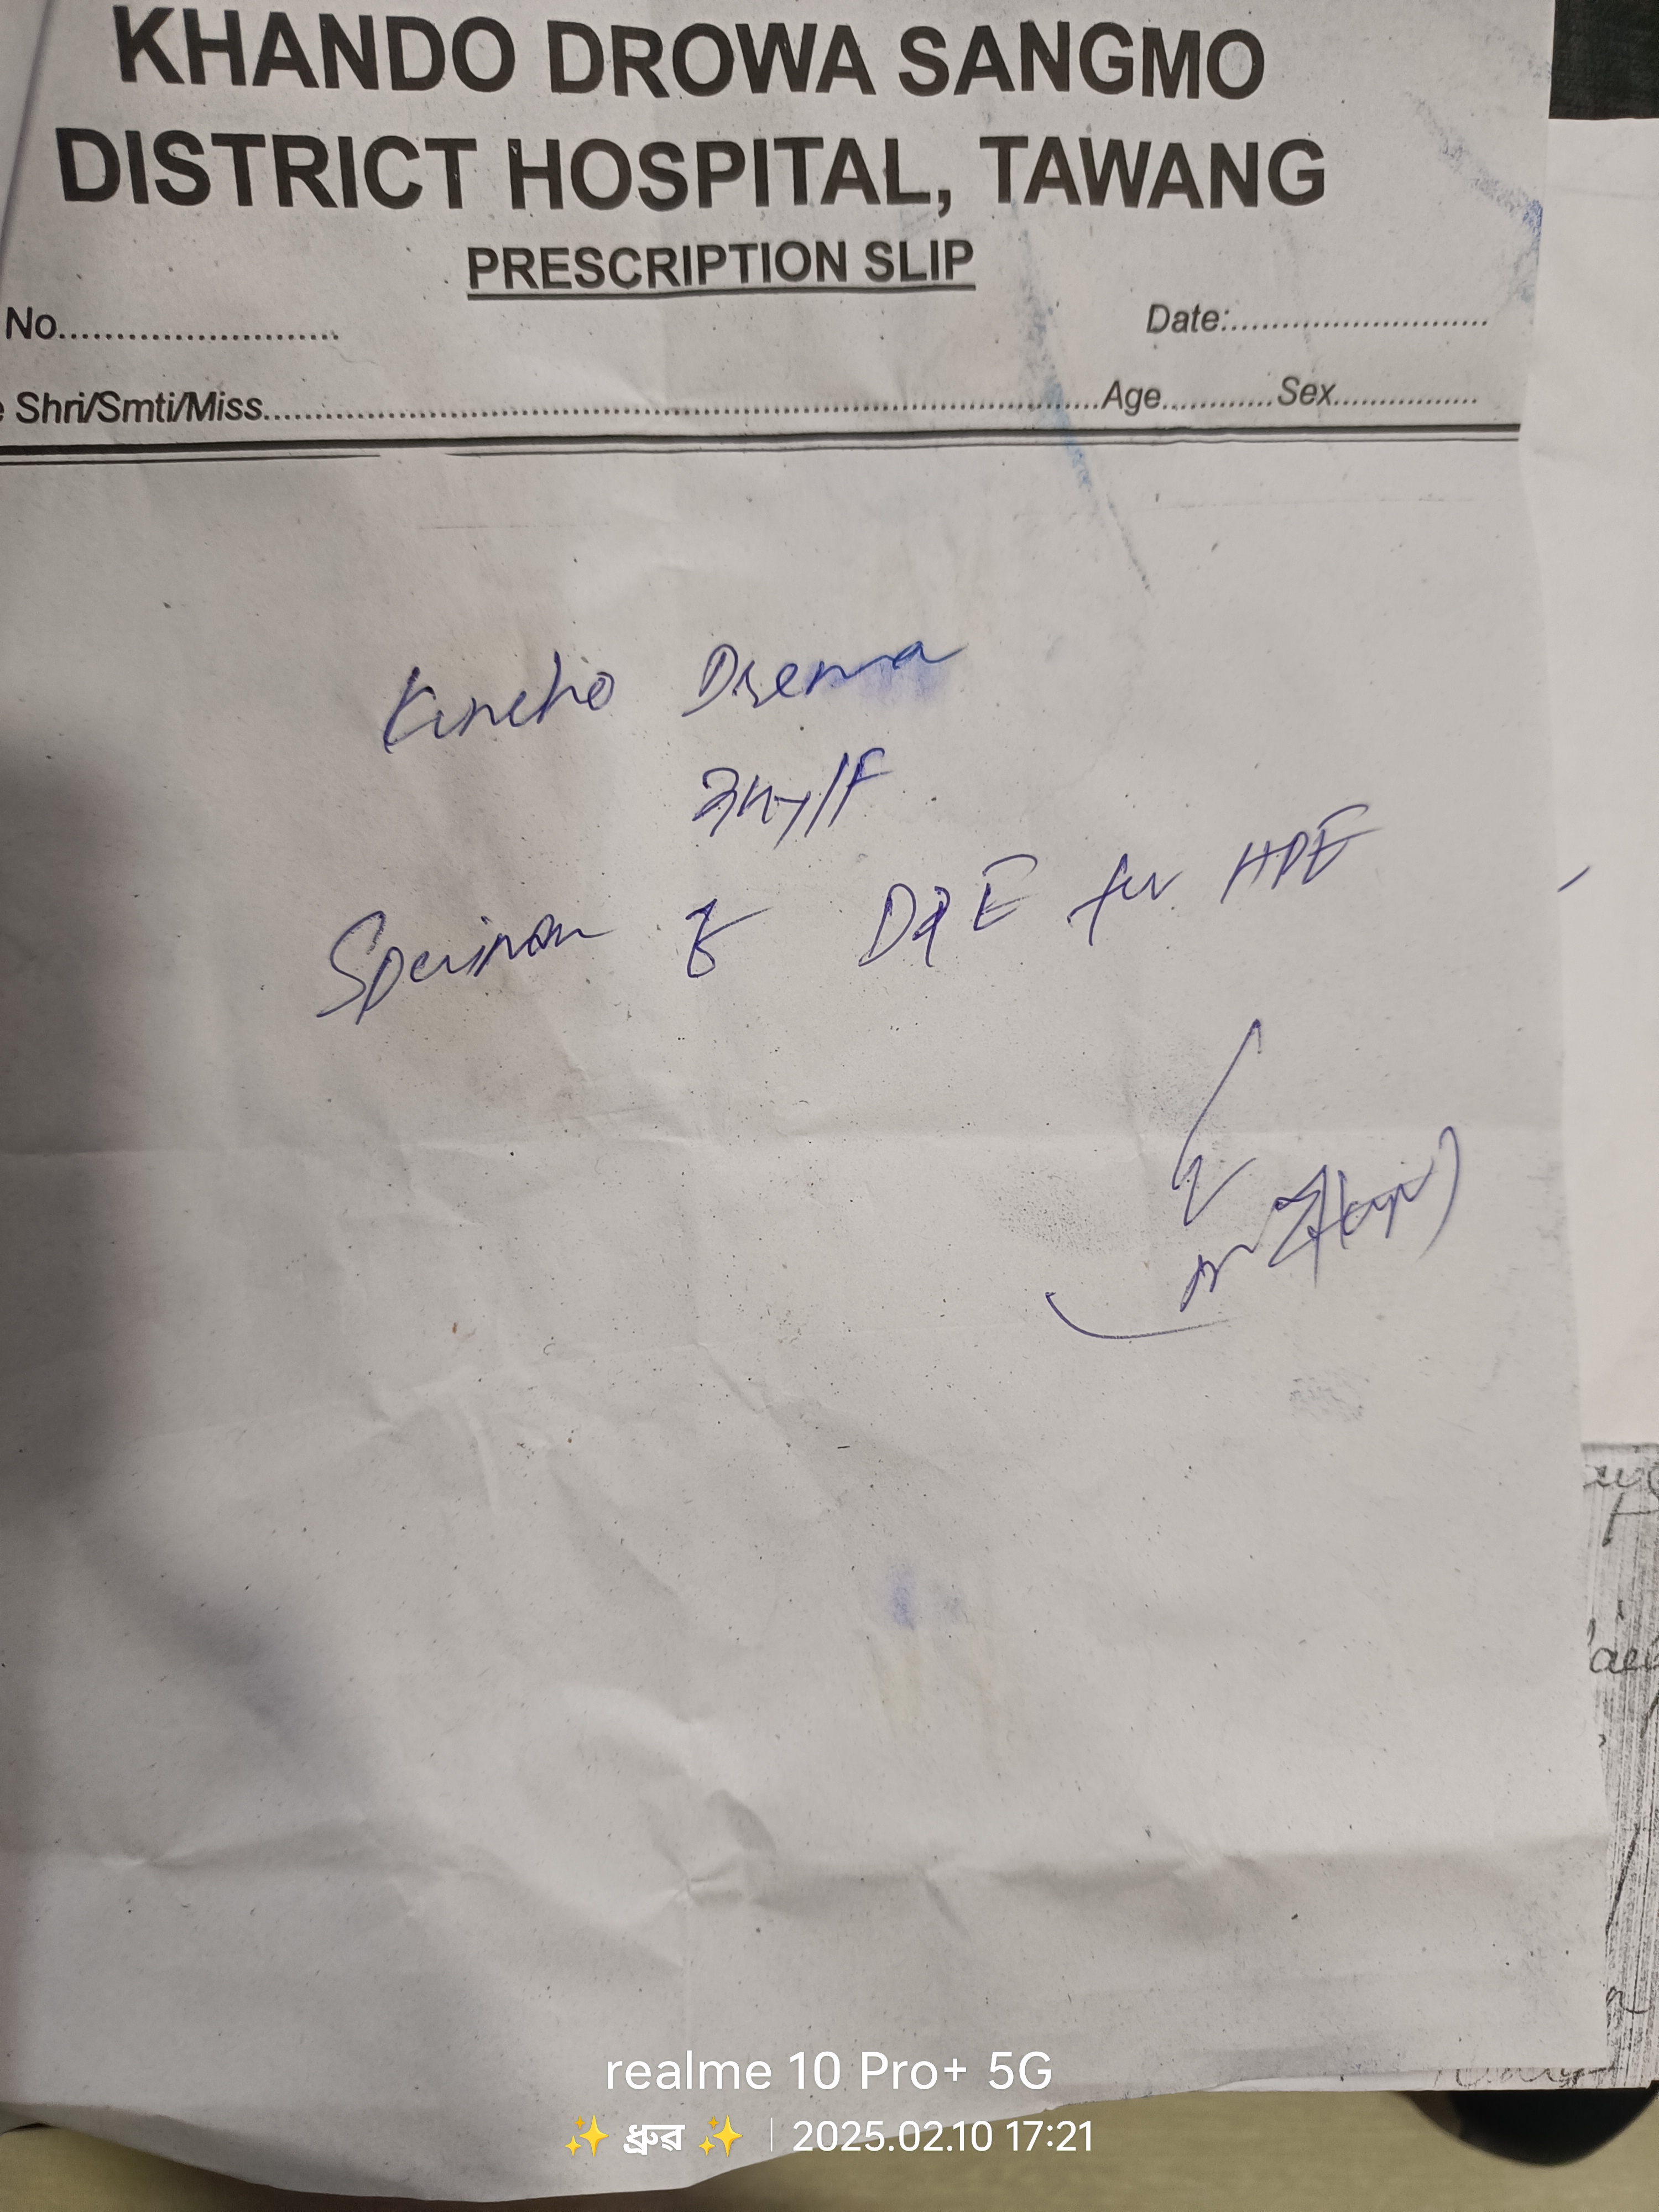 KHANDO DROWA SANGMO
DISTRICT HOSPITAL, TAWANG
PRESCRIPTION SLIP
No............................ Date:............................
Shri/Smti/Miss............................Age............Sex................
Kincho Drema
Specimen of D&E for HPE
realme 10 Pro+ 5G
✨ ধ্ৰুৱ ✨ | 2025.02.10 17:21